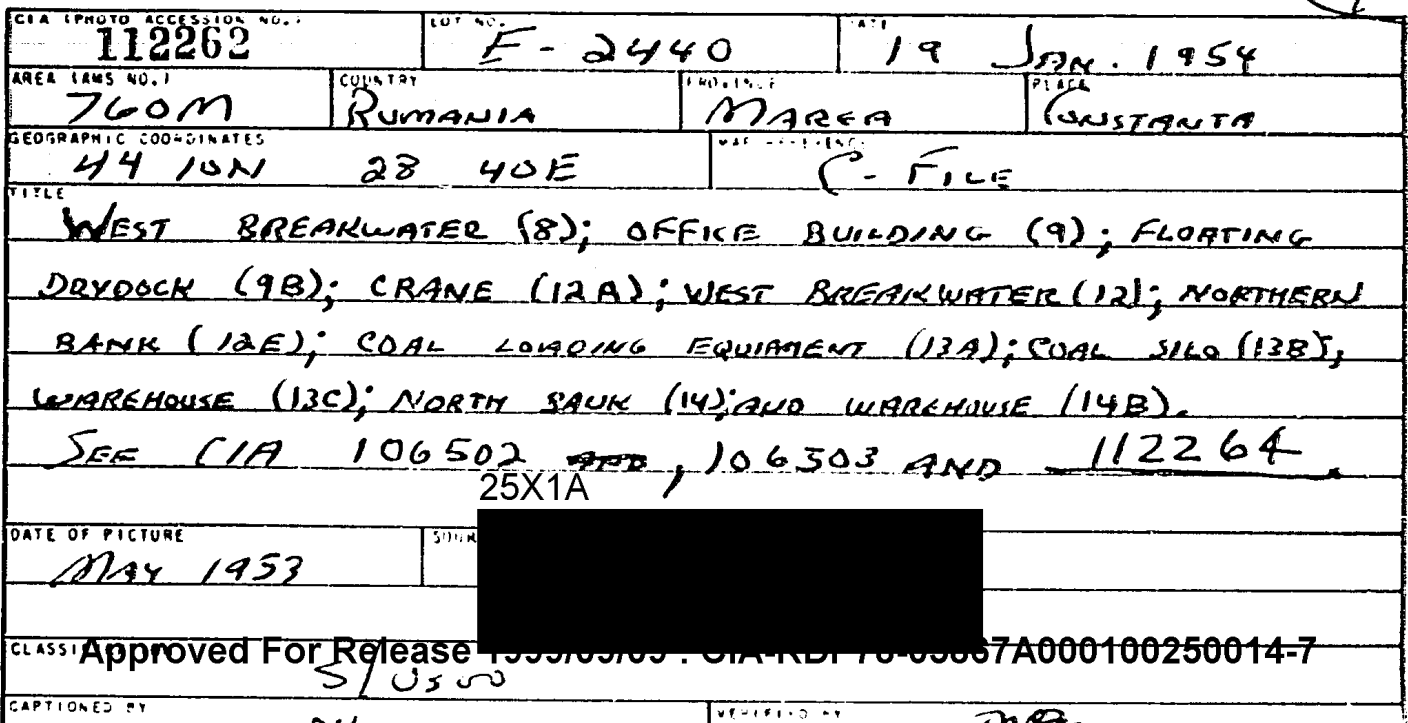 CIA (PHOTO ACCESSION NO.) LOT NO. DATE
112262 E-2440 19 JAN. 1954
AREA (AMS NO.) COUNTRY PROVINCE PLACE
760M RUMANIA MAREA CONSTANTA
GEOGRAPHIC COORDINATES
44 10N 28 40E C-FILE
TITLE
WEST BREAKWATER (8); OFFICE BUILDING (9); FLOATING
DRYDOCK (9B); CRANE (12A); WEST BREAKWATER (12); NORTHERN
BANK (12E); COAL LOADING EQUIPMENT (13A); COAL SILO (13B);
WAREHOUSE (13C); NORTH BANK (14); AND WAREHOUSE (14B).
SEE CIA 106502 , 106503 AND 112264.
25X1A
DATE OF PICTURE SOUR
MAY 1953
CLASSI Approved For Release 1999/09/09 : CIA-RDP78-03867A000100250014-7
CAPTIONED BY VERIFIED BY